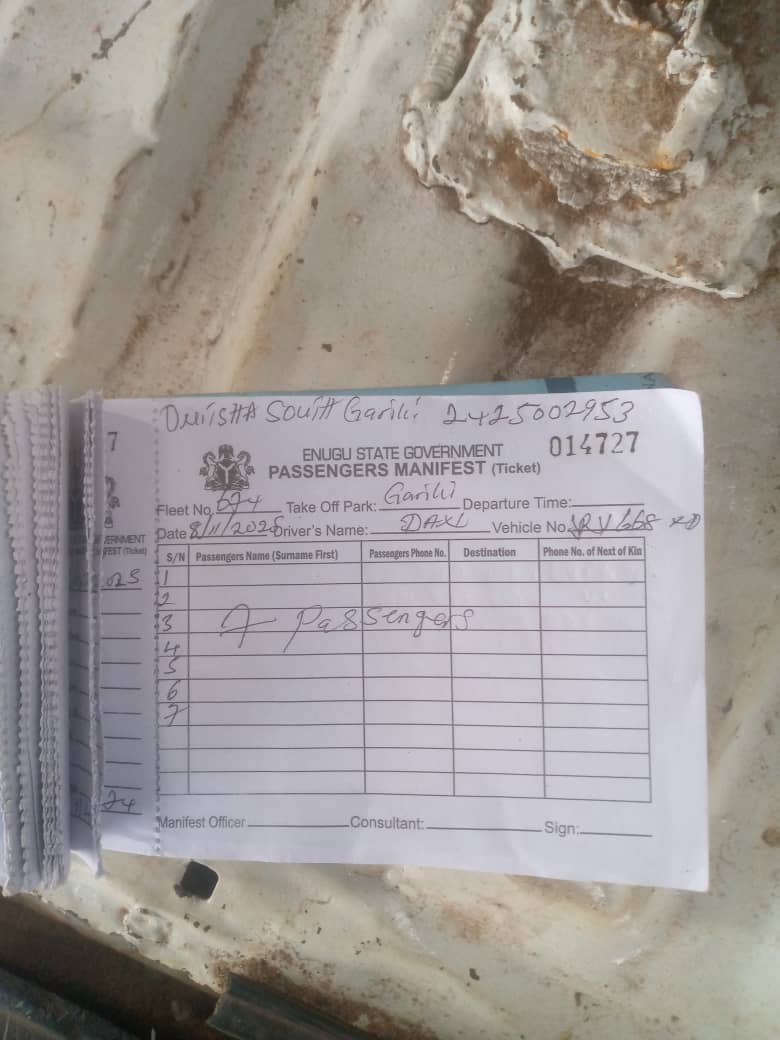 Onitsha South Gariki 2425002953
ENUGU STATE GOVERNMENT 014727
PASSENGERS MANIFEST (Ticket)
Fleet No. 674 Take Off Park: Gariki Departure Time:
Date 8/11/2025 Driver's Name: Vehicle No.
S/N Passengers Name (Surname First) Passengers Phone No. Destination Phone No. of Next of Kin
1
2
3 7 Passengers
4
5
6
7
Manifest Officer Consultant: Sign: